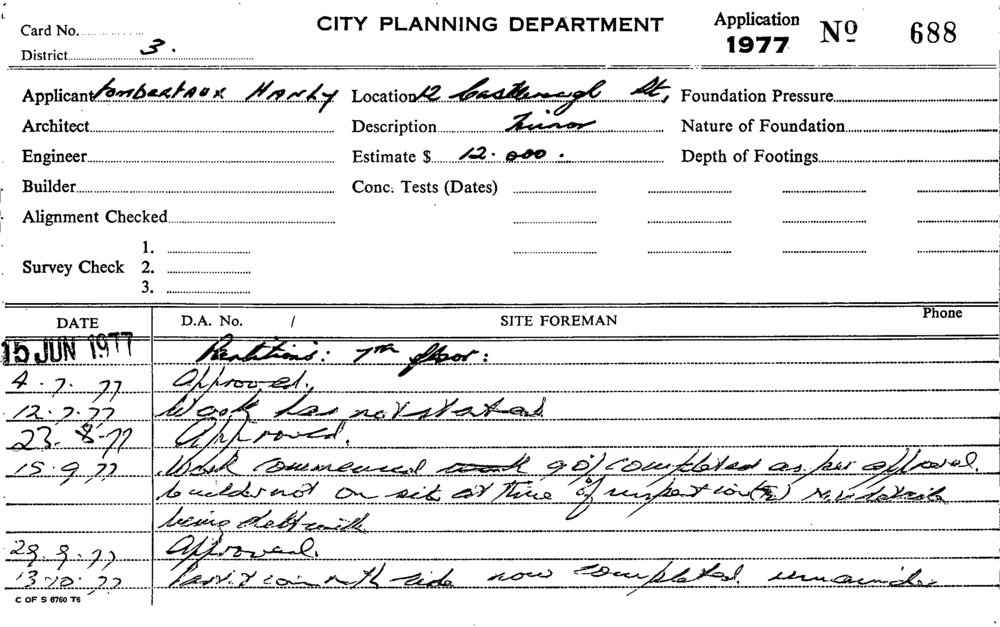 CITY PLANNING DEPARTMENT
Card No.
District 3.
Application 1977 No 688
Applicant Lombertaux Hanly
Location 12 Castlereagh St,
Foundation Pressure
Architect
Description Minor
Nature of Foundation
Engineer
Estimate $ 12.000.
Depth of Footings
Builder
Conc. Tests (Dates)
Alignment Checked
Survey Check
1.
2.
3.
DATE D.A. No. / SITE FOREMAN Phone
15 JUN 1977 Partitions: 7th floor:
4.7.77 Approved.
12.7.77 Work has not started
23.8.77 Approved.
15.9.77 Work commenced 90% completed as per approval.
builder not on site at time of inspection
being dealt with
29.9.77 Approved.
13.10.77 now completed remainder
C OF S 6760 T6